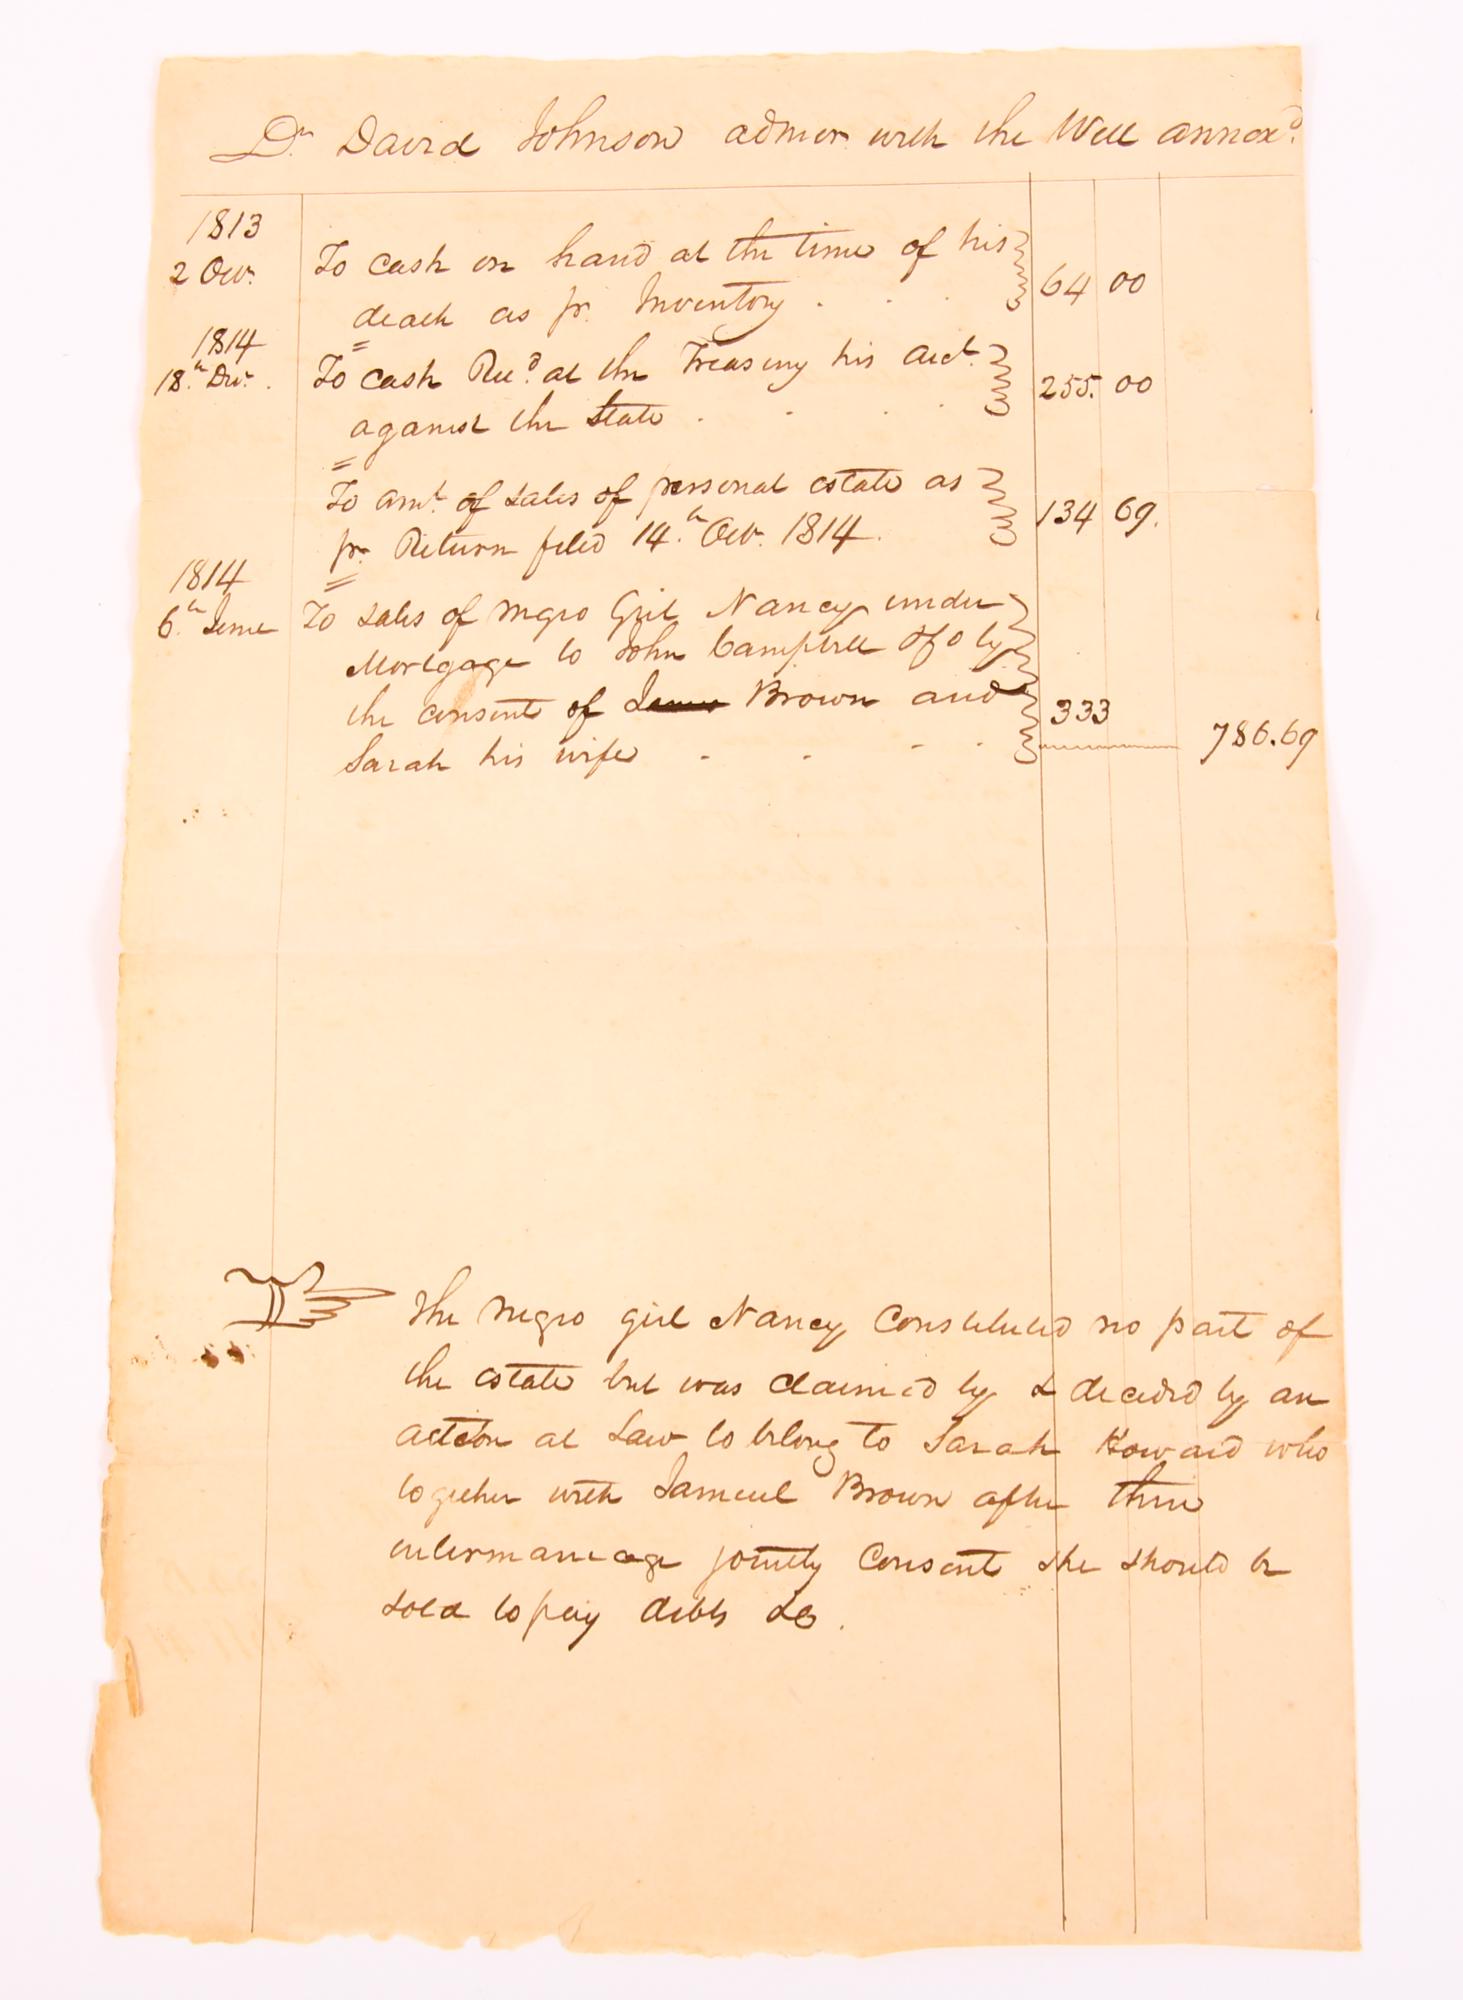 Dr. David Johnson admor. with the Will annexd.
1813
2 Octr. To cash on hand at the time of his
death as pr. Inventory . . . 64 00
1814
18th Decr. To cash Recd. at the Treasury his acct.
against the State . . . . 255. 00
To amt. of sales of personal estate as
pr. Return filed 14th Octr. 1814. 134 69.
1814
6th June To sales of negro Girl Nancy under
Mortgage to John Campbell Esq by
the consent of Brown and 333
Sarah his wife - - - - 786.69
The negro girl Nancy Constituted no part of
the estate but was claimed by & decided by an
action at Law to belong to Sarah Howard who
together with Samuel Brown after their
intermarriage jointly Consent she should be
sold to pay debts &c.